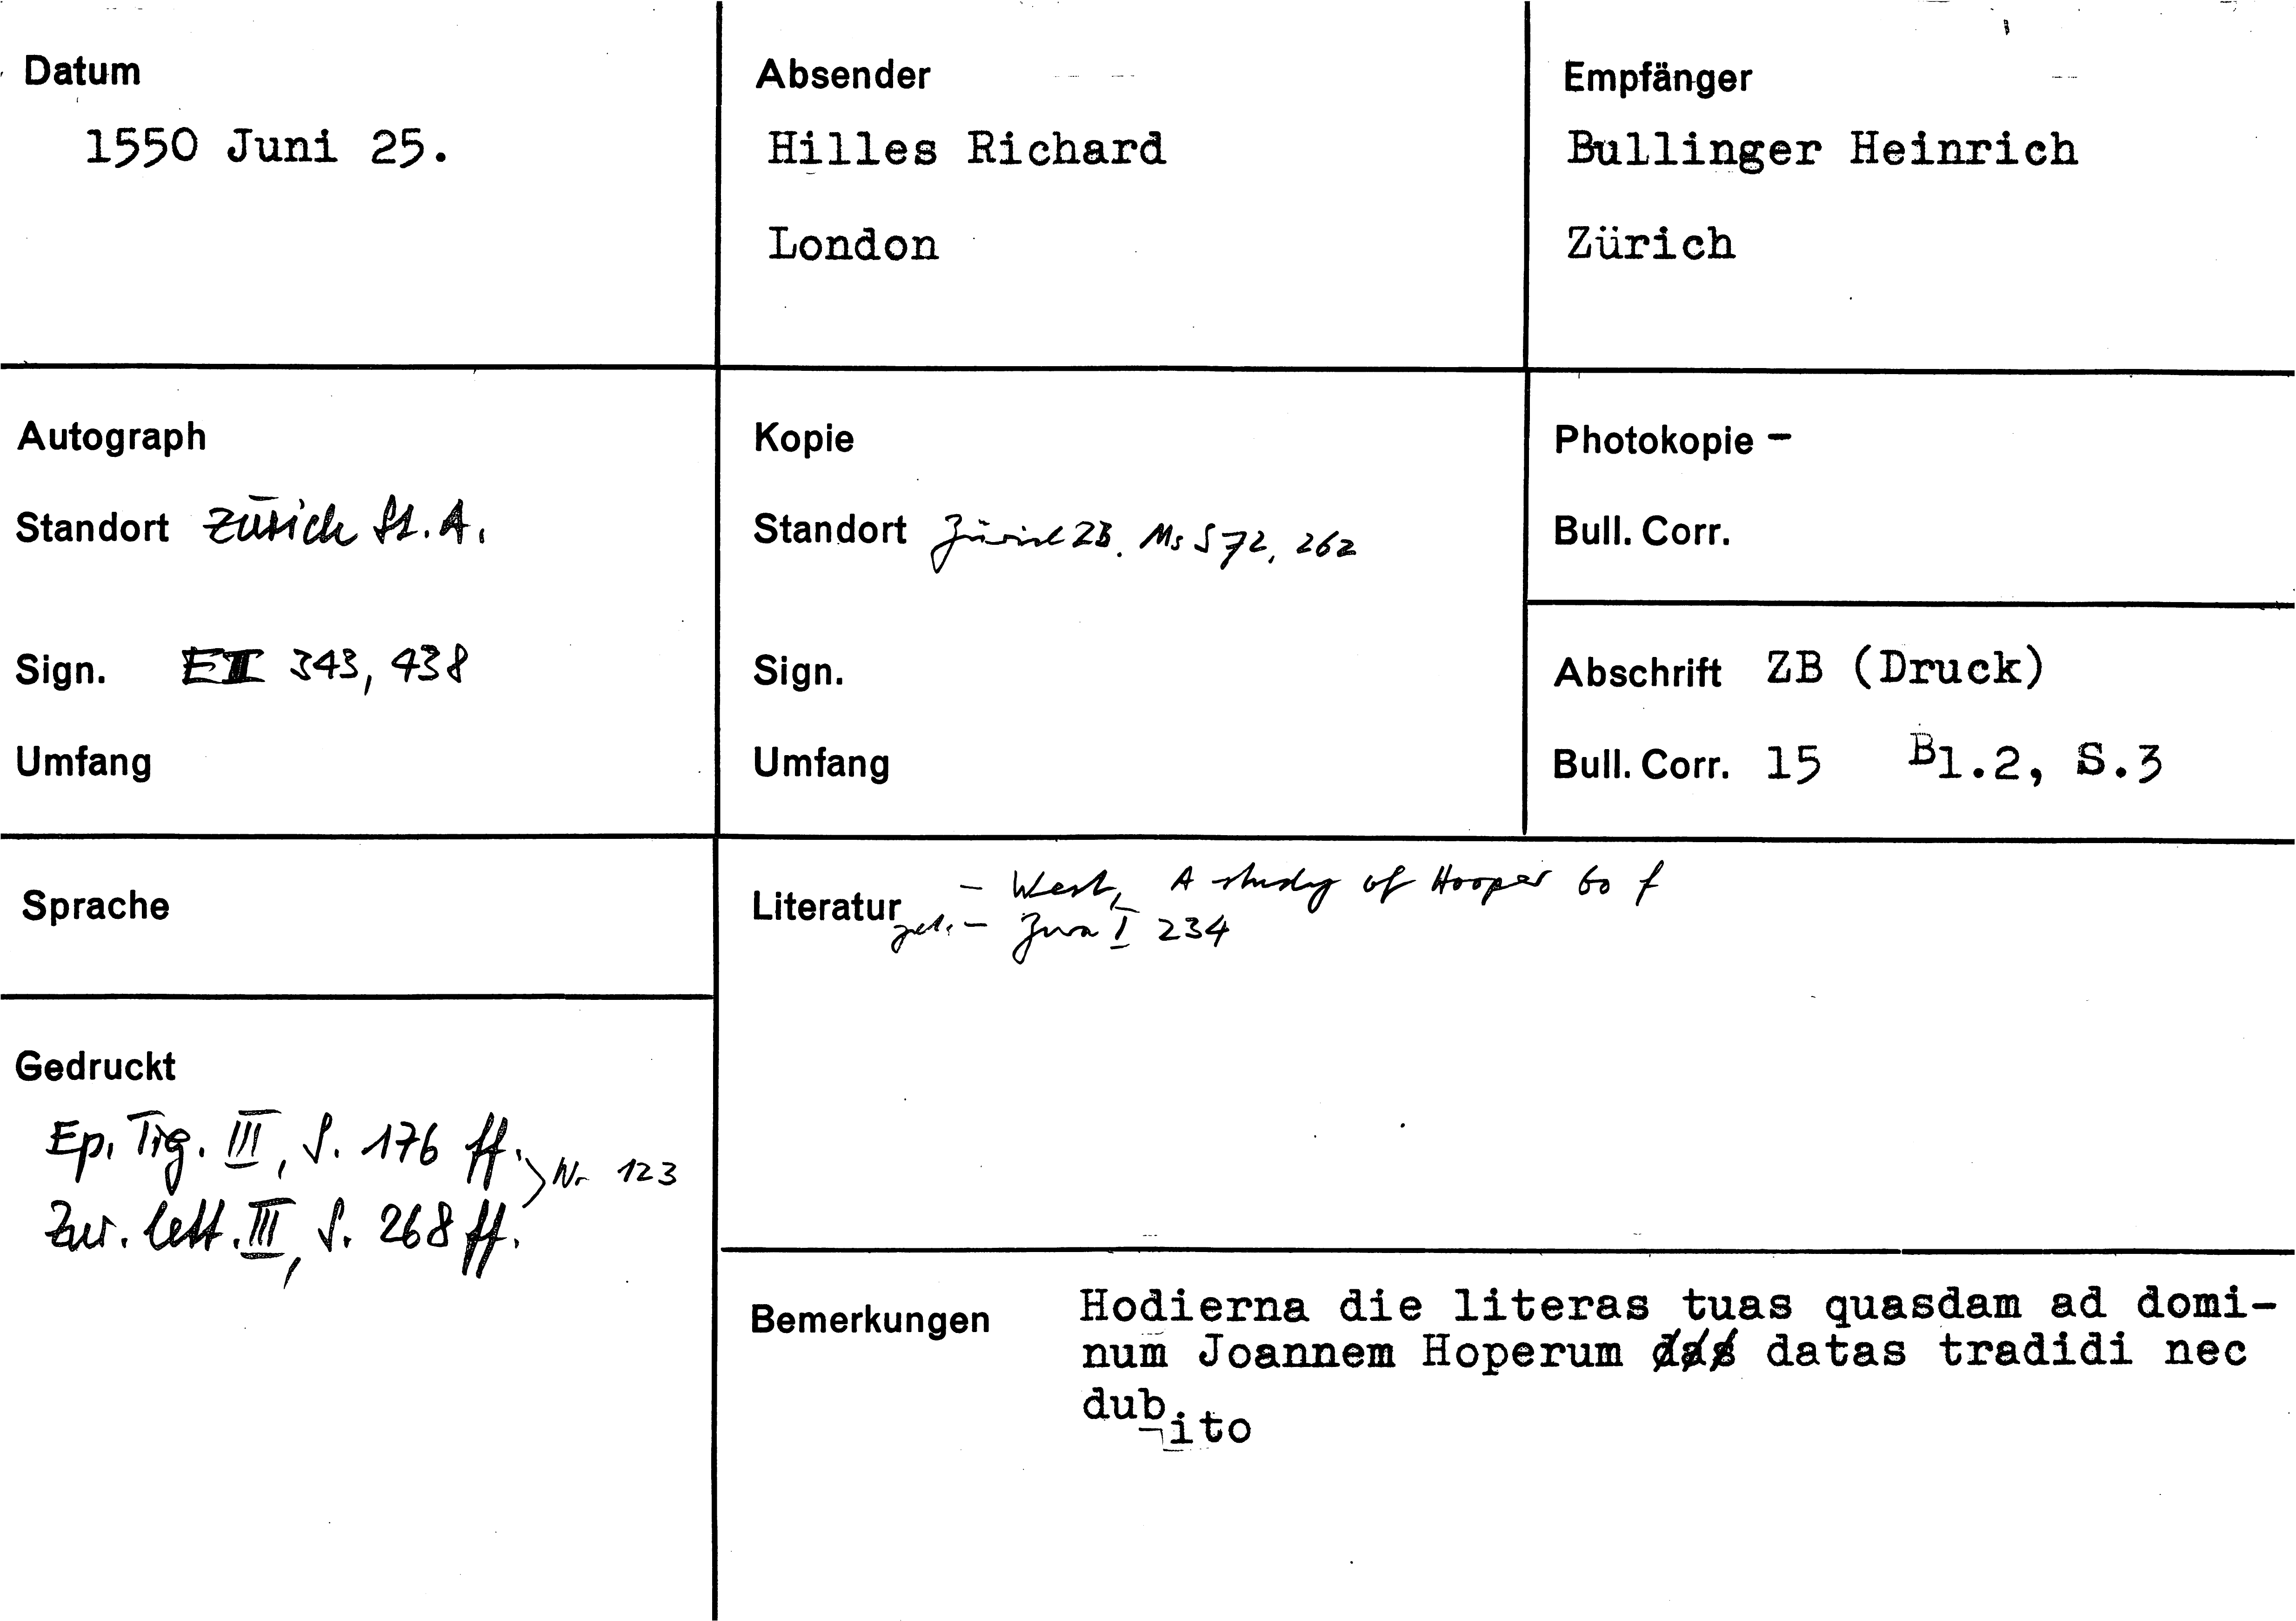 Datum
1550 Juni 25.
Absender
Hilles Richard
London
Empfänger
Bullinger Heinrich
Zürich
Autograph
Standort Zürich St.A.
Sign. E II 343, 438
Umfang
Kopie
Standort Zürich ZB. Ms S 72, 262
Sign.
Umfang
Photokopie -
Bull. Corr.
Abschrift ZB (Druck)
Bull. Corr. 15 Bl.2, S.3
Sprache
Literatur - West, A study of Hooper 60 f
- I 234
Gedruckt
Ep. Tig. III, S. 176 ff.
Nr 123
Zur. lett. III, S. 268 ff.
Bemerkungen
Hodierna die literas tuas quasdam ad domi-
num Joannem Hoperum datas tradidi nec
dubito